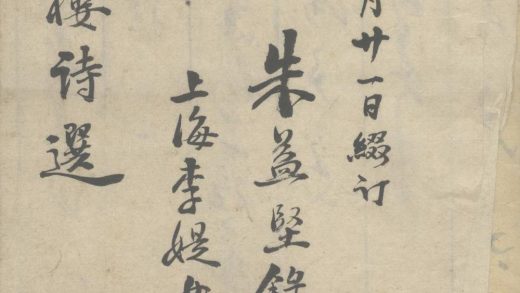 月廿一日綴订
朱益堅錄
上海李媞
樓诗選